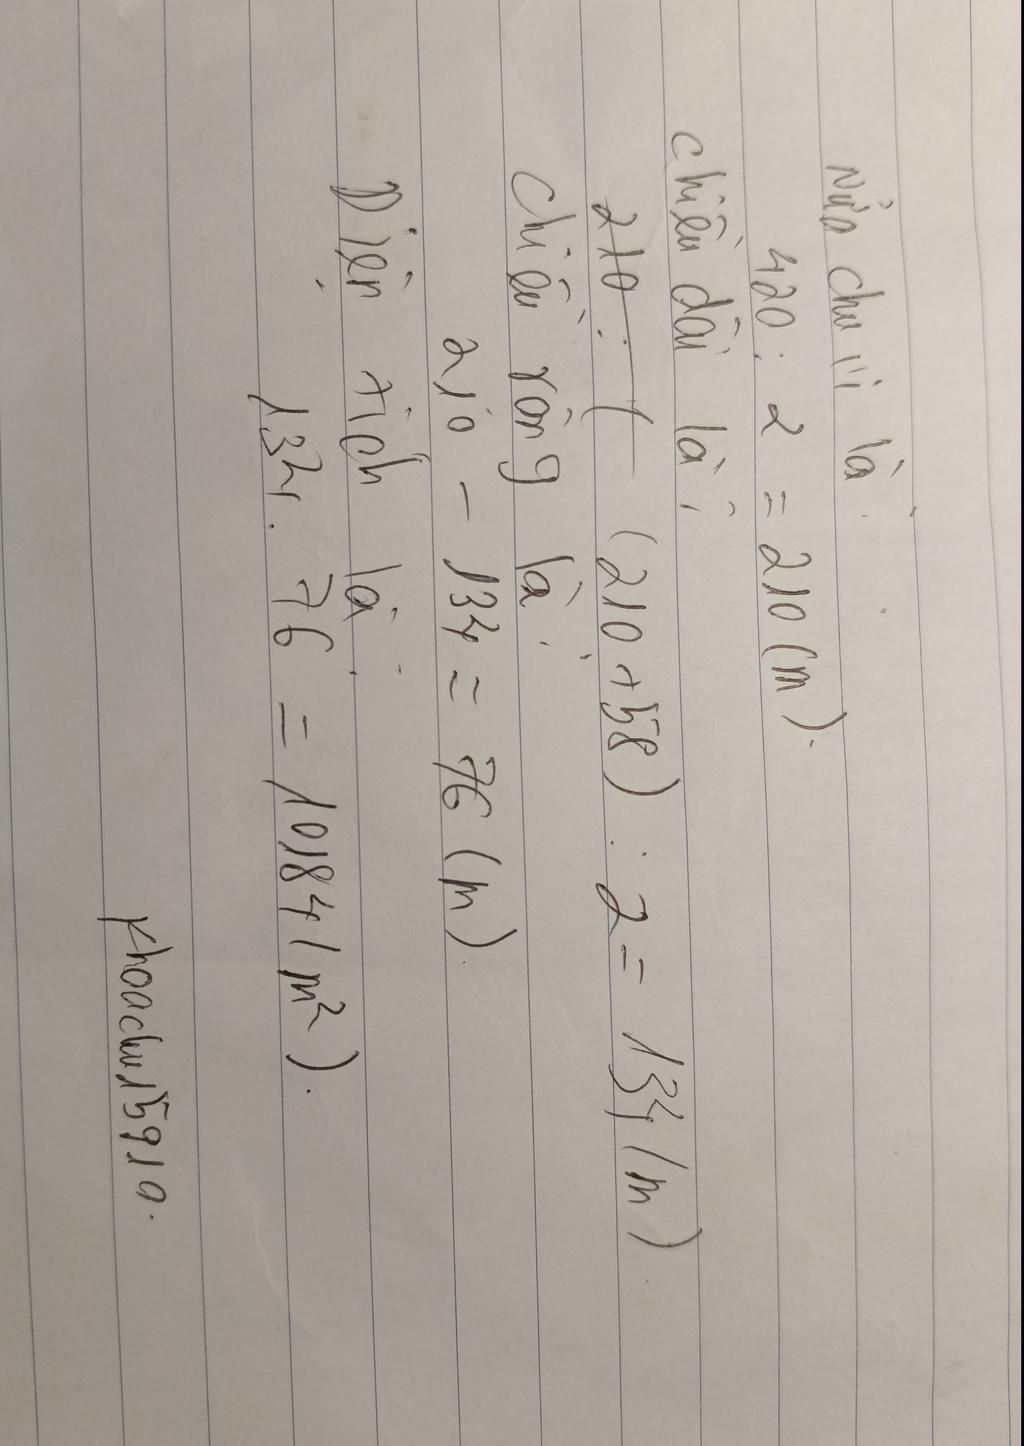 Nửa chu vi là:
420 : 2 = 210 (m).
Chiều dài là:
210 : ( (210 + 58) : 2 = 134 (m).
Chiều rộng là:
210 - 134 = 76 (m).
Diện tích là:
134. 76 = 10184 (m²).
Khoachu15910.